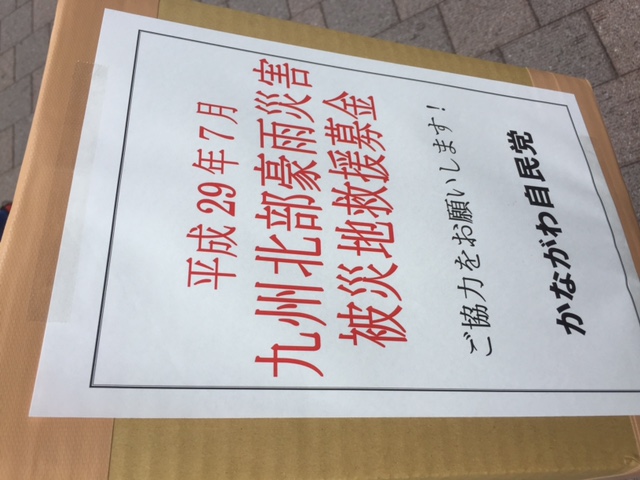 平成29年7月
九州北部豪雨災害
被災地救援募金
ご協力をお願いします!
かながわ自民党